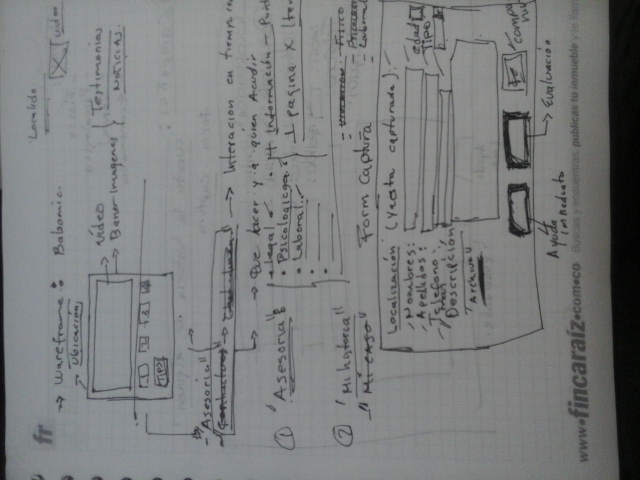 fr
Localido
→ Wareframe : Babomic.
video
Ubicación
→ video
→ Baner Imagenes
Testimonios
Noticias.
1 2 3 4
TIPS
"Asesoria"
Contactos
→ Interacion en tiemp
→ Que hacer y a quien Acudir
1 "Asesoria":
• Legal ✓
• Psicologicga ✓
• Laboral ✓
Información
1 pagina X Item
2 "Mi historia"
"Mi caso"
Fisico
Laboral
Form Captura
Localización (Ya esta capturada).
Nombres:
Apellidos:
Telefono:
Mail
Descripción
"Archivo"
edad
Tipo
Ayuda inmediata
→ Evaluación
www.fincaraíz.com.co Buscas y encuentras, publicas tu inmueble y te